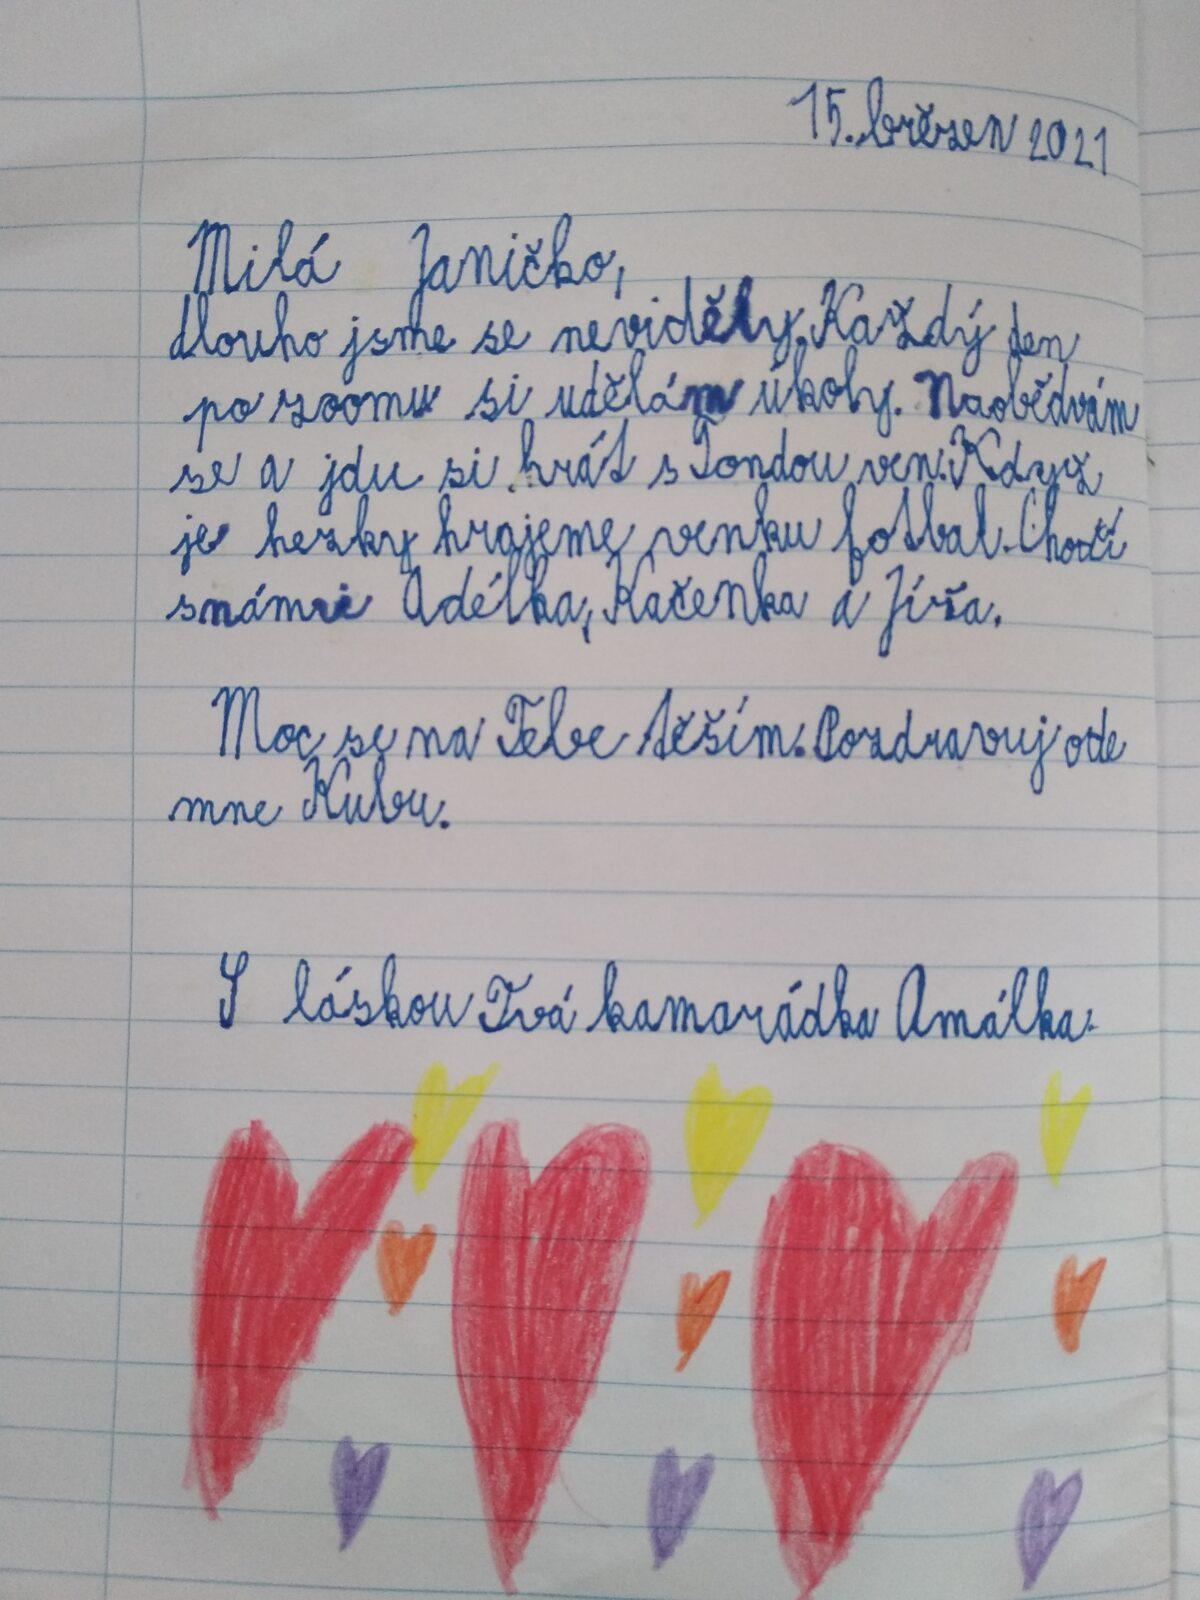 15. březen 2021
Milá Janičko,
dlouho jsme se neviděly. Každý den
po zoomu si udělám úkoly. Naobědvám
se a jdu si hrát s Tondou ven. Když
je hezky hrajeme venku fotbal. Chodí
snámi Adélka, Kačenka a Jíra.
Moc se na Tebe těším. Pozdravuj ode
mne Kubu.
S láskou Tvá kamarádka Amálka.